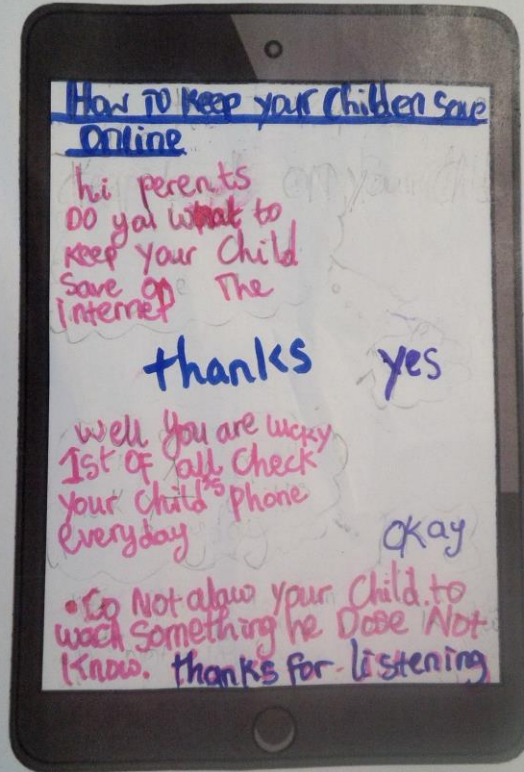 How To Keep your Childen Save
Online
hi perents
Do yal what to
Keep your Child
Save on The
internet
thanks yes
well you are lucky
1st of all Check
your child's phone
everyday
okay
• Do Not alaw your Child to
wach Something he Dose Not
Know. thanks for listening